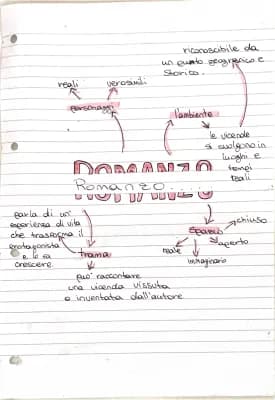 riconoscibile da
un punto geografico e
storico.
reali
verosimili
personaggi
l'ambiente
le vicende
si svolgono in
luoghi e
tempi
reali
ROMANZO
Romanzo......
parla di un'
esperienza di vita
che trasforma il
protagonista
e lo fa
crescere.
trama
può raccontare
una vicenda vissuta
o inventata dall'autore
spazio
chiuso
aperto
reale
immaginario